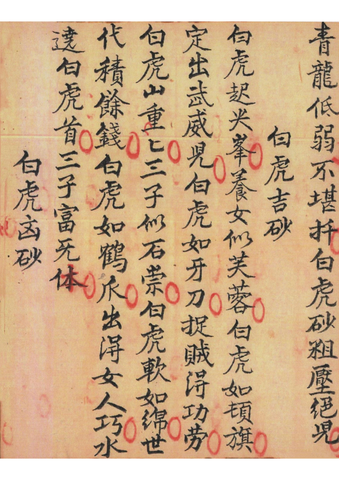 青龍低弱不堪扦白虎砂粗壓絕児
白虎吉砂
白虎起尖峯養女似芙蓉白虎如頓旗
定出武威児白虎如牙刀捉賊淂功劳
白虎山重〻三子似石崇白虎軟如綿世
代積餘錢白虎如鶴爪出淂女人巧水
遶白虎首三子富旡体
白虎凶砂